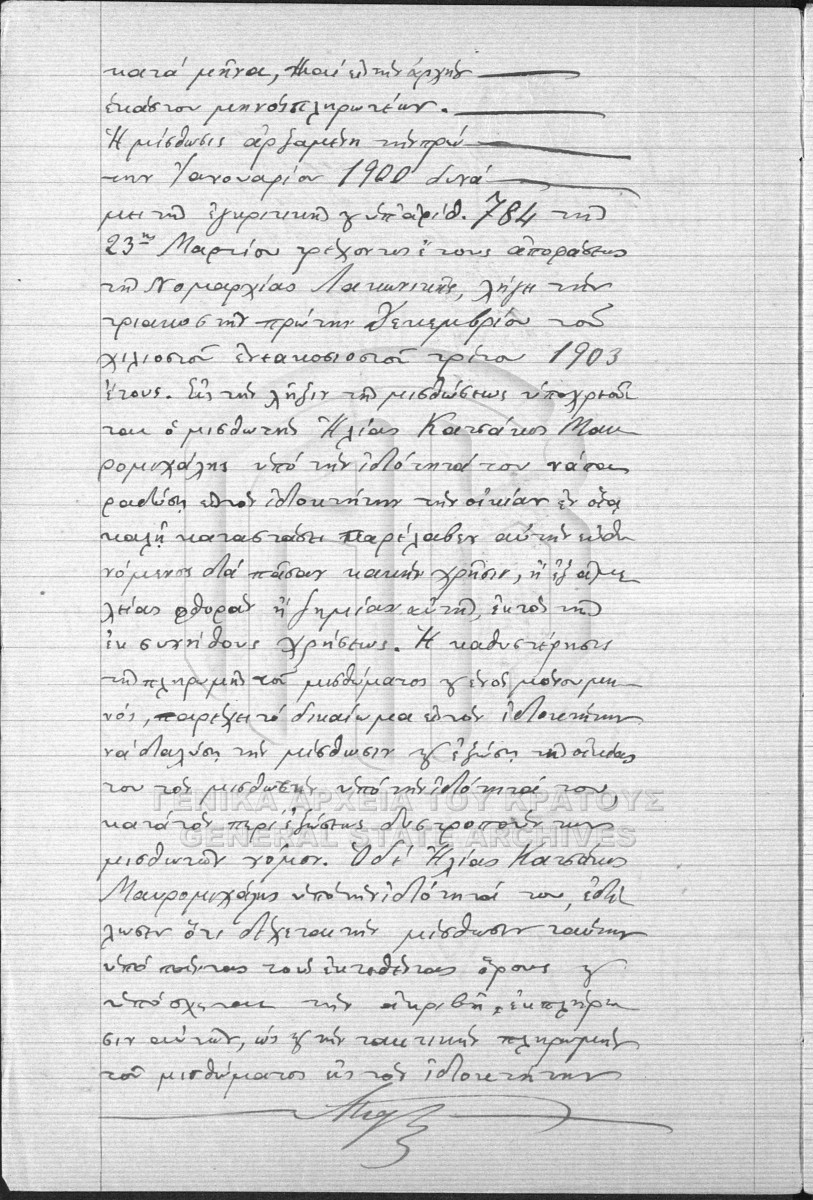 κατά μῆνα, καί εἰς τήν ἀρχήν
ἑκάστου μηνός πληρωτέων.
Ἡ μίσθωσις ἀρξαμένη τήν πρώ
την Ἰανουαρίου 1900 δυνά
μει τῆς ἐγκριτικῆς ὑπ' ἀριθ. 784 τῆς
23ης Μαρτίου τρέχοντος ἔτους ἀποφάσεως
τῆς Νομαρχίας Λακωνικῆς, λήγει τήν
τριακοστήν πρώτην Δεκεμβρίου τοῦ
χιλιοστοῦ ἐννεακοσιοστοῦ τρίτου 1903
ἔτους. Εἰς τήν λῆξιν τῆς μισθώσεως ὑποχρεοῦ
ται ὁ μισθωτής Ἠλίας Κατσάκος Μαυ
ρομιχάλης ὑπό τήν ἰδιότητά του νά πα
ραδώσῃ εἰς τόν ἰδιοκτήτην τήν οἰκίαν ἐν οἵᾳ
καλῇ καταστάσει παρέλαβεν αὐτήν εὐθυ
νόμενος διά πᾶσαν κακήν χρῆσιν, ἤ ἐξ ἀμε
λείας φθοράν ἤ ζημίαν αὐτῆς, ἐκτός τῆς
ἐκ συνήθους χρήσεως. Ἡ καθυστέρησις
τῆς πληρωμῆς τοῦ μισθώματος ἑνός μόνου μη
νός, παρέχει τό δικαίωμα εἰς τόν ἰδιοκτήτην
νά διαλύσῃ τήν μίσθωσιν ἐξώσῃ τῆς οἰκίας
του τόν μισθωτήν ὑπό τήν ἰδιότητά του
κατά τόν περί ἐξώσεως δυστροπούντων
μισθωτῶν νόμον. Ὁ δέ Ἠλίας Κατσάκος
Μαυρομιχάλης ὑπό τήν ἰδιότητά του, ἐδή
λωσεν ὅτι δέχεται τήν μίσθωσιν ταύτην
ὑπό πάντας τούς ἐκτεθέντας ὅρους
ὑπόσχεται τήν ἀκριβῆ ἐκπλήρω
σιν αὐτῶν, ὡς τήν τακτικήν πληρωμήν
τοῦ μισθώματος εἰς τόν ἰδιοκτήτην
ΓΕΝΙΚΑ ΑΡΧΕΙΑ ΤΟΥ ΚΡΑΤΟΥΣ
GENERAL STATE ARCHIVES